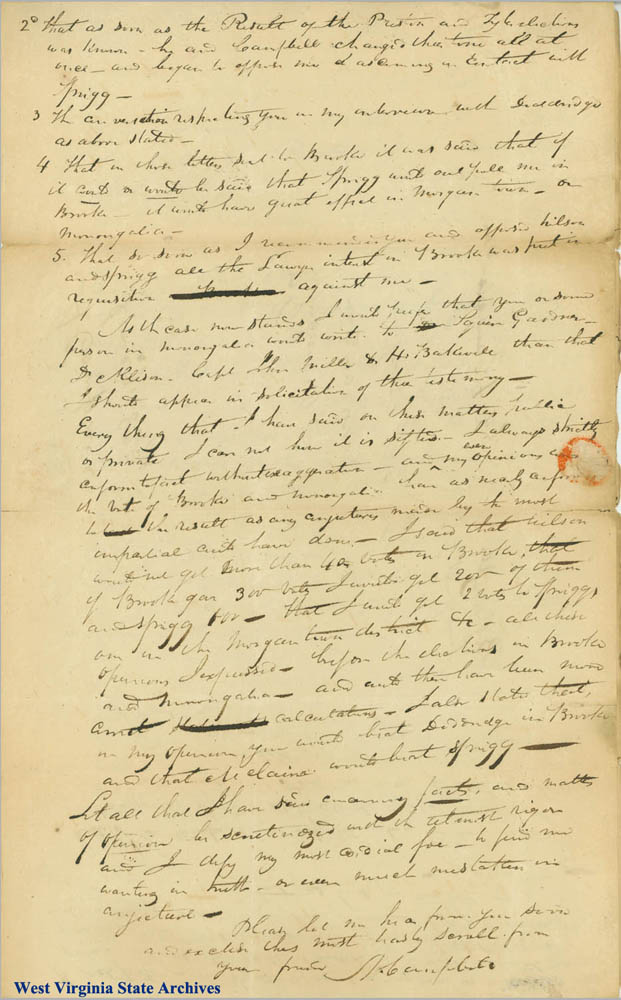 2d That as soon as the Result of the Preston and Tyler elections
was known - he and Campbell changed their tone all at
once - and began to oppose me & as coming in Contact with
Sprigg -
3 The conversation respecting you in my interview with Doddridge
as above stated -
4 That in those letters sent to Brooke it was said that if
it could or would be said that Sprigg would out poll me in
Brooke - it would have great effect in Morgan Town - or
Monongalia -
5. That so soon as I recommended you and opposed Wilson
and Sprigg all the Lawyer interest in Brooke was put in
requisition against me -
As the case now stands I would hope that you or some
person in Monongalia would write to Squire Gardner -
Dr Allison - Capt John Miller & H. Bakewell than that
I should appear in solicitation of their testimony -
Every thing that I have said on these matters public
or private I care not how it is sifted - I always strictly
conform to fact without exaggeration - and my opinions even
the vote of Brooke and Monongalia have as nearly conformed
to the result as any conjectures made by the most
impartial could have done - I said that Wilson
would not get more than 40 votes in Brooke, that
if Brooke gave 300 votes I would get 200 of them
and Sprigg 100 - that I would get 2 votes to Sprigg's
one in the Morgan town district &c - all these
opinions I expressed - before the elections in Brooke
and Monongalia - and could there have been more
correct calculations - I also stated that,
in my opinion you would beat Doddridge in Brooke
and that McClaine would beat Sprigg -
Let all that I have said concerning facts, and matters
of opinion be scrutinized with the utmost rigor
and I defy my most cordial foe - to find me
wanting in truth - or even much mistaken in
conjecture -
Please let me hear from you soon
and excuse this most hasty scrall from
your friend A Campbell
West Virginia State Archives